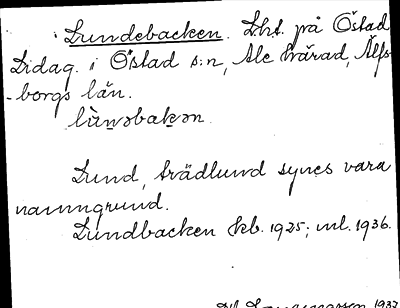 Lundebacken. Lht. på Östad
Lidag. i Östad s:n, Ale härad, Älfs-
borgs län.
lùn̥ɔbakɔn.
Lund, trädlund synes vara
namngrund.
Lundbacken kb. 1925; ml. 1936.
1937